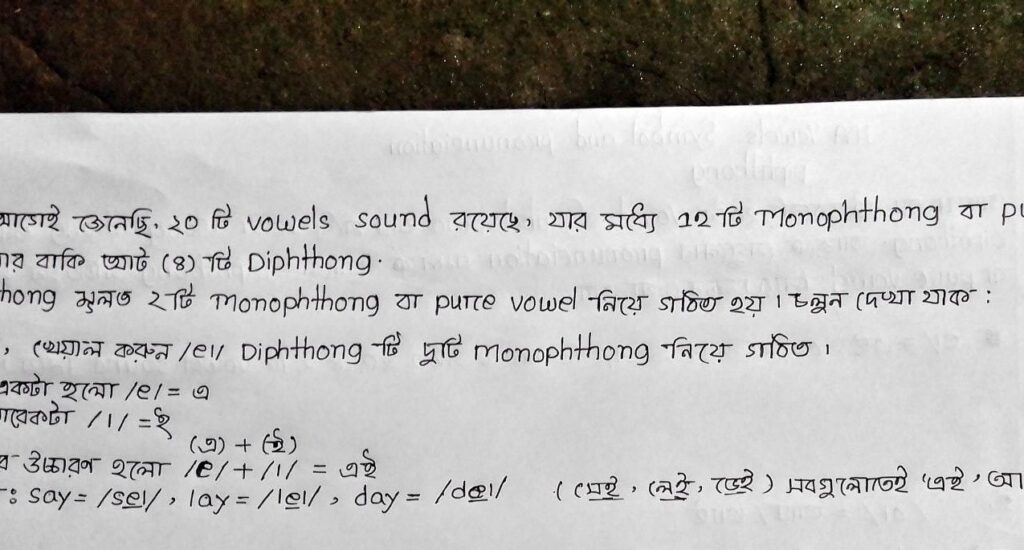 আগেই জেনেছি, ২০ টি vowels sound রয়েছে, যার মধ্যে ১২ টি Monophthong বা pu
আর বাকি আট (৪) টি Diphthong.
hong মূলত ২টি monophthong বা pure vowel নিয়ে গঠিত হয়। চলুন দেখা যাক :
, খেয়াল করুন /eɪ/ Diphthong টি দুটি monophthong নিয়ে গঠিত।
একটা হলো /e/ = এ
আরেকটা /ɪ/ = ই
(এ) + (ই)
র উচ্চারণ হলো /e/ + /ɪ/ = এই
: say = /seɪ/, lay = /leɪ/, day = /deɪ/ (সেই, লেই, ডেই) সবগুলোতেই 'এই, আ